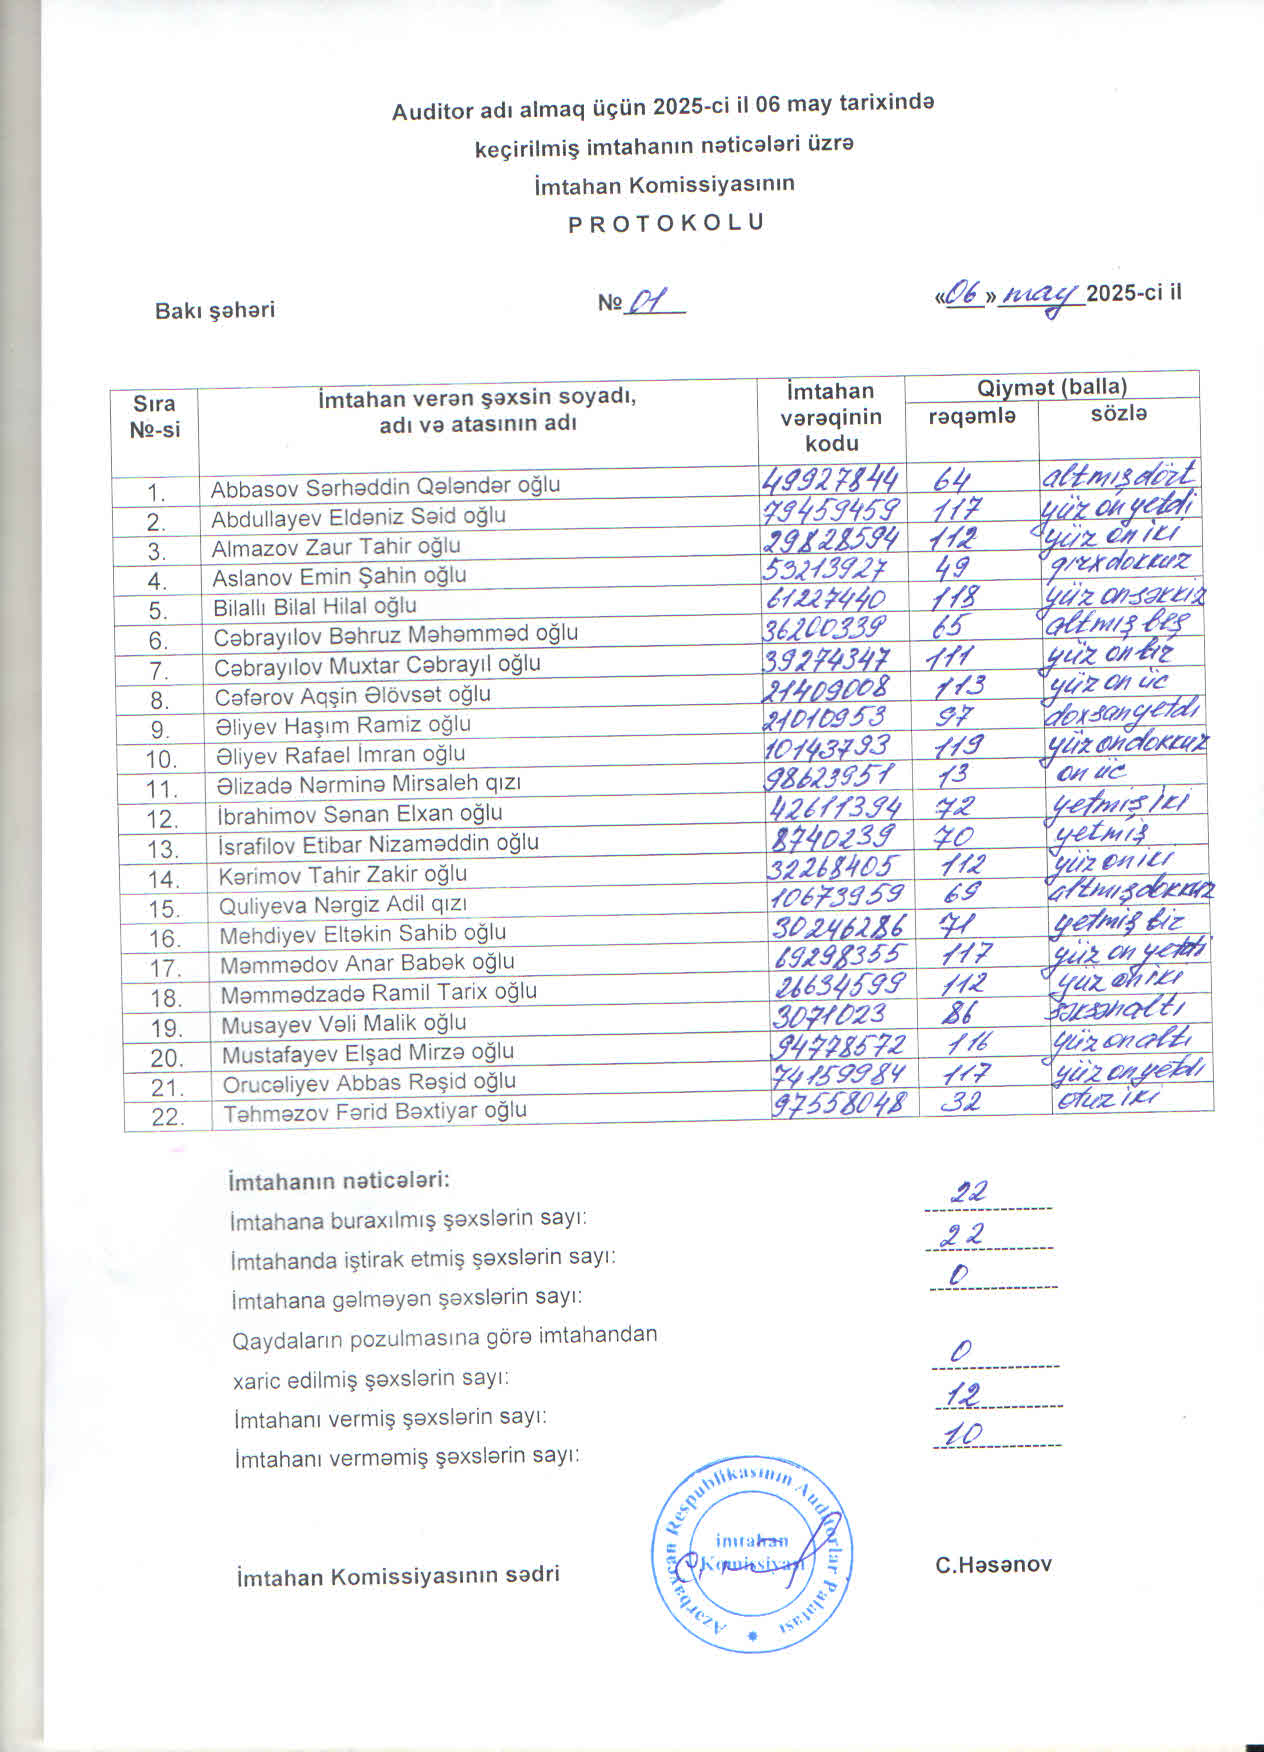 Auditor adı almaq üçün 2025-ci il 06 may tarixində
keçirilmiş imtahanın nəticələri üzrə
İmtahan Komissiyasının
P R O T O K O L U
Bakı şəhəri № 01 «06» may 2025-ci il
Sıra №-si İmtahan verən şəxsin soyadı, adı və atasının adı İmtahan vərəqinin kodu Qiymət (balla) rəqəmlə sözlə
1. Abbasov Sərhəddin Qələndər oğlu 49927844 64 altmış dört
2. Abdullayev Eldəniz Səid oğlu 79459459 117 yüz on yetdi
3. Almazov Zaur Tahir oğlu 29828594 112 yüz on iki
4. Aslanov Emin Şahin oğlu 53213927 49 qırx dokkuz
5. Bilallı Bilal Hilal oğlu 61227440 118 yüz on səkkiz
6. Cəbrayılov Bəhruz Məhəmməd oğlu 36200339 65 altmış beş
7. Cəbrayılov Muxtar Cəbrayıl oğlu 39274347 111 yüz on bir
8. Cəfərov Aqşin Əlövsət oğlu 21409008 113 yüz on üç
9. Əliyev Haşım Ramiz oğlu 21010953 97 doxsan yetdi
10. Əliyev Rafael İmran oğlu 10143793 119 yüz on dokkuz
11. Əlizadə Nərminə Mirsaleh qızı 98623951 13 on üç
12. İbrahimov Sənan Elxan oğlu 42611394 72 yetmiş iki
13. İsrafilov Etibar Nizaməddin oğlu 8740239 70 yetmiş
14. Kərimov Tahir Zakir oğlu 32268405 112 yüz on iki
15. Quliyeva Nərgiz Adil qızı 10673959 69 altmış dokkuz
16. Mehdiyev Eltəkin Sahib oğlu 30246286 71 yetmiş bir
17. Məmmədov Anar Babək oğlu 69298355 117 yüz on yetdi
18. Məmmədzadə Ramil Tarix oğlu 26634599 112 yüz on iki
19. Musayev Vəli Malik oğlu 3071023 86 səksən altı
20. Mustafayev Elşad Mirzə oğlu 94778572 116 yüz on altı
21. Orucəliyev Abbas Rəşid oğlu 74159984 117 yüz on yetdi
22. Təhməzov Fərid Bəxtiyar oğlu 97558048 32 otuz iki
İmtahanın nəticələri:
İmtahana buraxılmış şəxslərin sayı: 22
İmtahanda iştirak etmiş şəxslərin sayı: 22
İmtahana gəlməyən şəxslərin sayı: 0
Qaydaların pozulmasına görə imtahandan
xaric edilmiş şəxslərin sayı: 0
İmtahanı vermiş şəxslərin sayı: 12
İmtahanı verməmiş şəxslərin sayı: 10
Azərbaycan Respublikasının Auditorlar Palatası
İmtahan
Komissiyası
İmtahan Komissiyasının sədri C.Həsənov